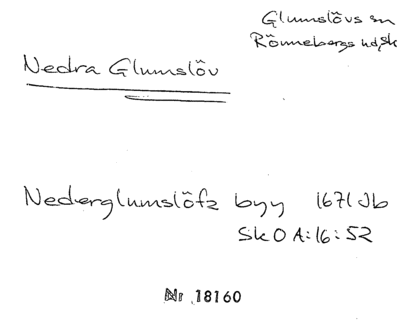 Glumslövs sn
Rönnebergs hd, Sk
Nedra Glumslöv
Nederglumslöfz byy 1671 Jb
Sk O A:16:52
Nr 18160